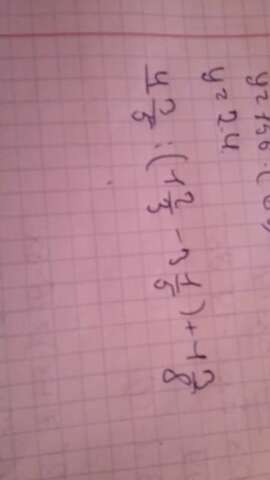 y = 156 : (
y = 2.4
4 2/5 : (1 2/3 - 3 1/5) + 1 3/8